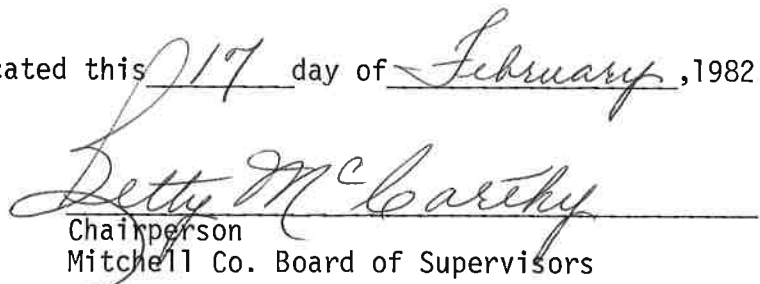 cated this 17 day of February ,1982
Betty McCarthy
Chairperson
Mitchell Co. Board of Supervisors